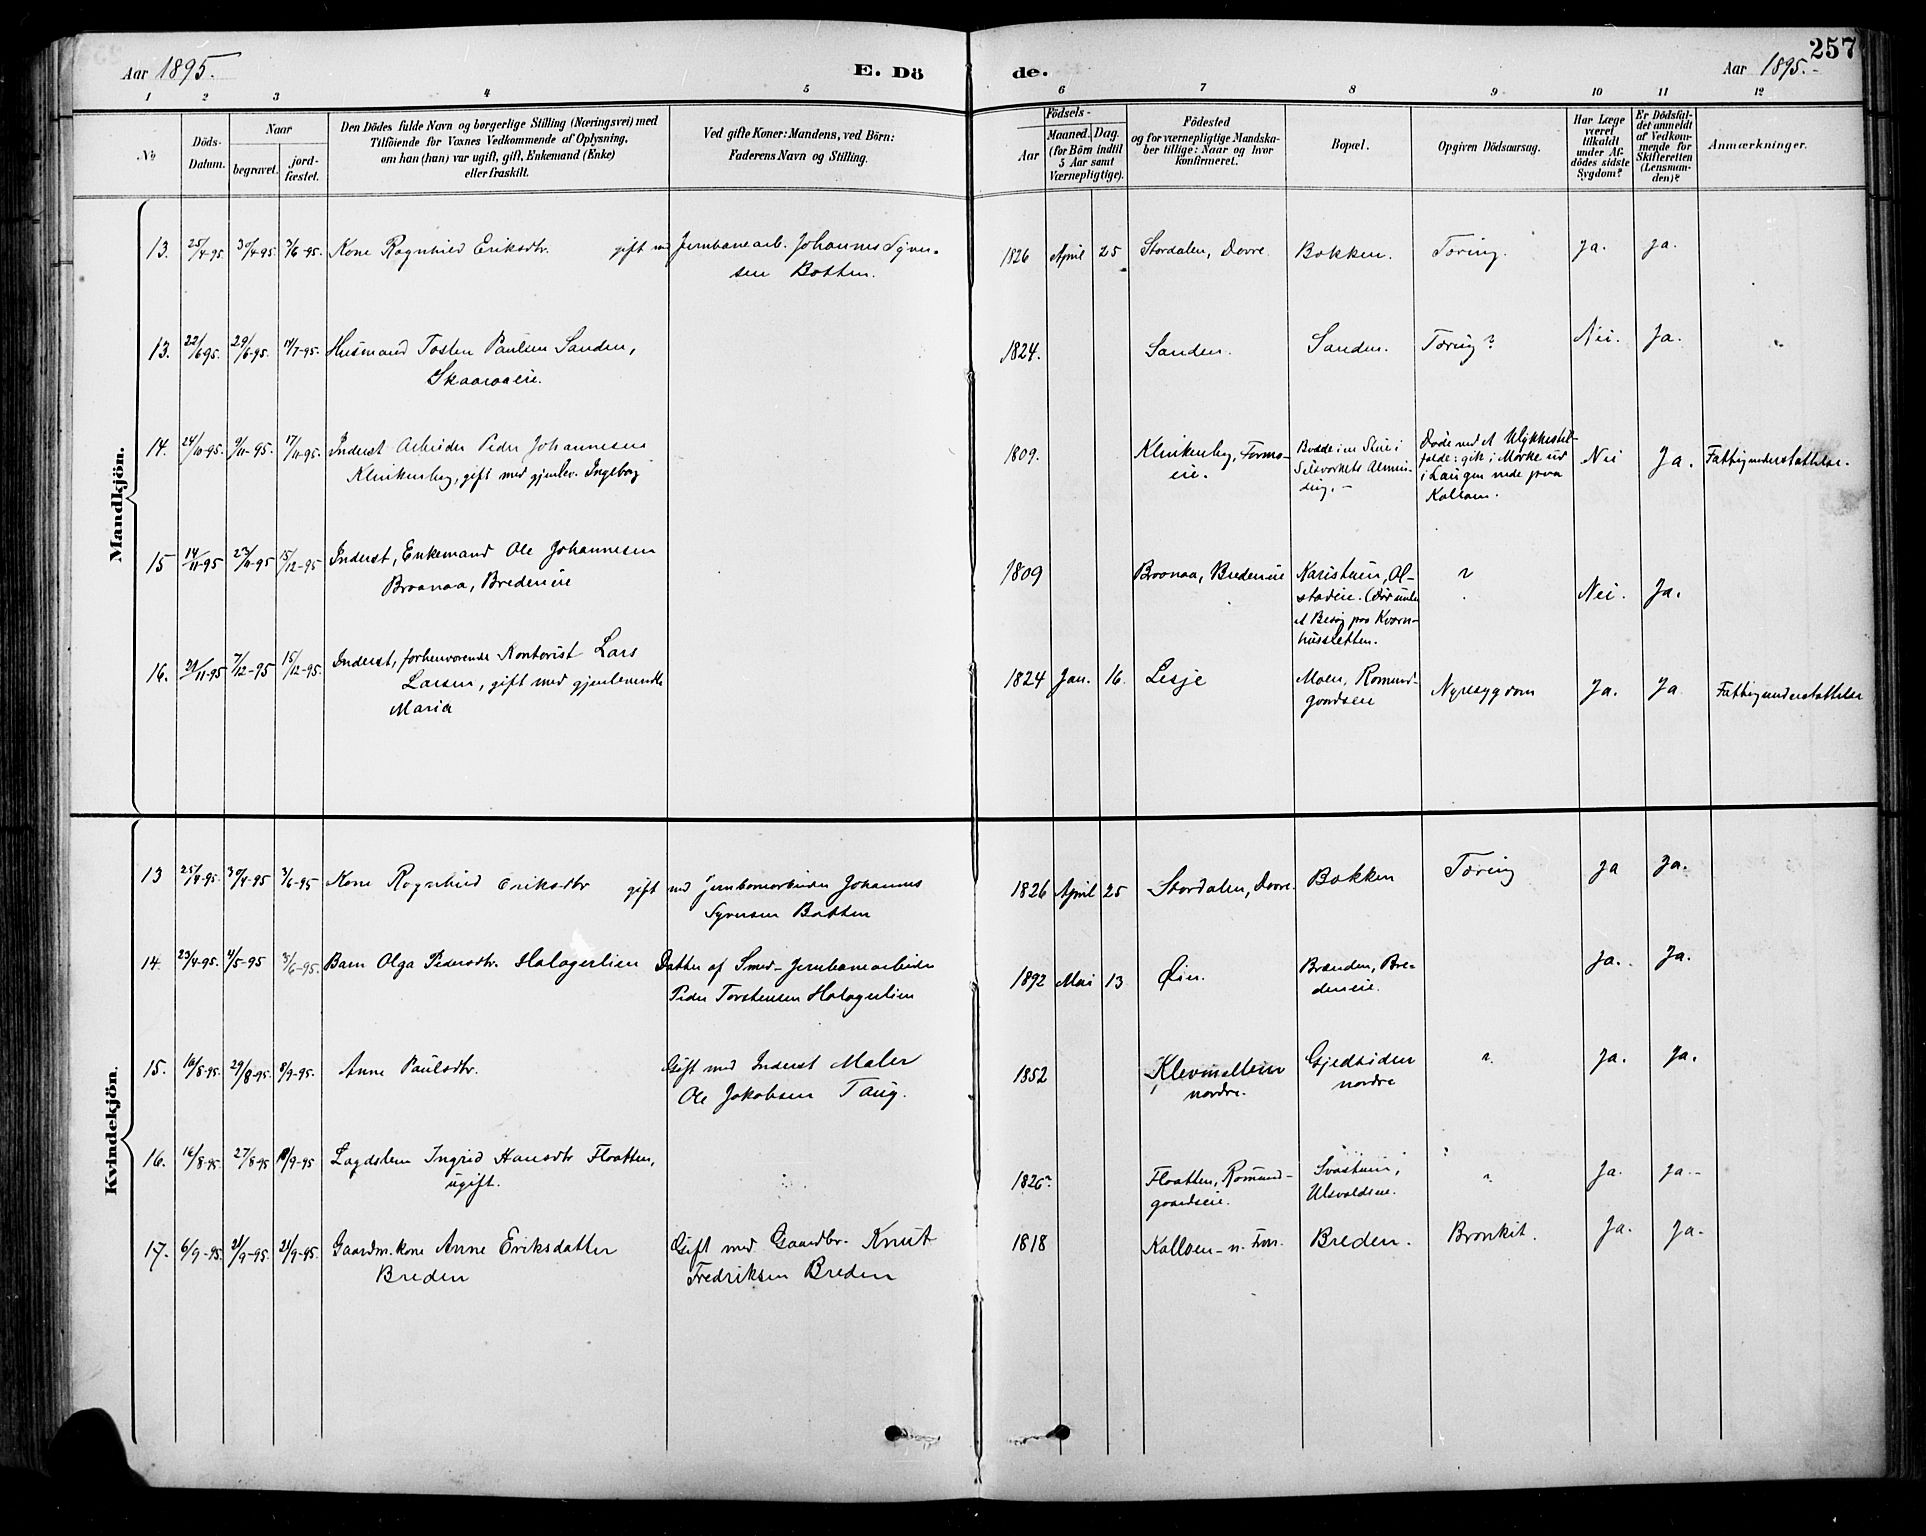 257
Aar 1895.
E. Dö
de.
Aar 1895.
1 2 3 4 5 6 7 8 9 10 11 12
No
Döds-
Datum.
Naar
begravet.
jord-
fæstet.
Den Dödes fulde Navn og borgerlige Stilling (Næringsvei) med
Tilföiende for Voxnes Vedkommende af Oplysning,
om han (han) var ugift, gift, Enkemand (Enke)
eller fraskilt.
Ved gifte Koner: Mandens, ved Börn:
Faderens Navn og Stilling.
Födsels-
Aar
Maaned.
Dag.
(for Börn indtil
5 Aar samt
Værnepligtige).
Födested
og for værnepligtige Mandska-
ber tillige: Naar og hvor
konfirmeret.
Bopæl.
Opgiven Dödsaarsag.
Har Læge
været
tilkaldt
under Af-
dödes sidste
Sygdom?
Er Dödsfal-
det anmeldt
af Vedkom-
mende for
Skifteretten
(Lensman-
den)?
Anmærkninger.
Mandkjön.
13. 25/4-95 30/4-95 3/6-95. Kone Ragnhild Eriksdtr. gift m/ Jernbanearb. Johannes Syver-
sen Botten.
1826 April 25 Stordalen, Dovre. Bakken. Tæring. Ja. Ja.
13. 22/6 95. 29/6-95. 14/7-95. Husmand Tosten Paulsen Sanden,
Skaaraaeie.
1824. Sanden. Sanden. Tæring? Nei. Ja.
14. 24/10-95 9/11-95 17/11-95 Inderst Arbeider Peder Johannesen
Klinkenberg, gift med gjenlev. Ingeborg
1809. Klinkenberg, Formo-
eie.
Selsverkets Almen-
ding. -
Døde ved et Ulykkestil-
fælde: gik i Mørke ud
i Laagen nede paa
Nei Ja. Fattigunderstøttelse.
15 14/11-95 23/11-95 15/12-95 Inderst, Enkemand Ole Johannesen
Braanaa, Bredeneie
1809 Braanaa, Bredeneie Karistuen, Ol-
stadeie. (Død under
et Besøg paa Kvern-
husletten.
? Nei. Ja.
16. 7/12-95 15/12-95. Inderst, forhenværende Kontorist Lars
Larsen, gift med gjenlevende
Maria
1824 Jan. 16. Lesje Moen, Romund-
gaardseie Nyresygdom Ja. Ja Fattigunderstøttelse
Kvindekjön.
13 25/4-95. 30/4-95 3/6-95 Kone Ragnhild Eriksdtr gift med Jernbanearbeider Johannes
Syversen Botten
1826 April 25 Stordalen, Dovre. Bakken Tæring ja Ja.
14. 23/4-95. 4/5-95 3/6-95. Barn Olga Pedersdtr. Halagerlien Datter af Smed-Jernbanearbeider
Peder Torstensen Halagerlien
1892 Mai 13 Øien. Brænden, Bre-
deneie. Ja. Ja.
15. 16/8-95. 29/8-95. 8/9-95. Anne Paulsdtr. Gift med Inderst Maler
Ole Jakobsen Taug.
1852
nordre. Gjedtsiden
nordre ? Ja. Ja.
16. 16/8-95. 27/8-95 /9-95 Lægdslem Ingrid Hansdtr Flaatten,
ugift.
1826? Flaatten, Romund-
gaardseie. Svastuen,
Ulsvoldseie. ? Ja. Ja.-
17. 6/9-95. 21/9-95. 21/9-95. Gaardm. kone Anne Eriksdatter
Breden
Gift med Gaardbr. Knut
Fredriksen Breden
1818 Breden. Bronkit. Ja. Ja.